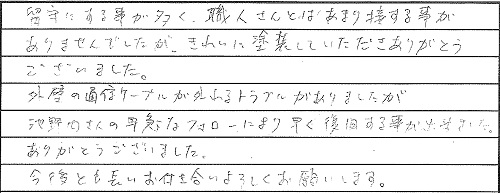 留守にする事が多く、職人さんとはあまり接する事が
ありませんでしたが、きれいに塗装していただきありがとう
ございました。
外壁の通信ケーブルが外れるトラブルがありましたが
池野内さんの早急なフォローにより早く復旧する事が出来ました。
ありがとうございました。
今後とも長いお付き合いよろしくお願いします。